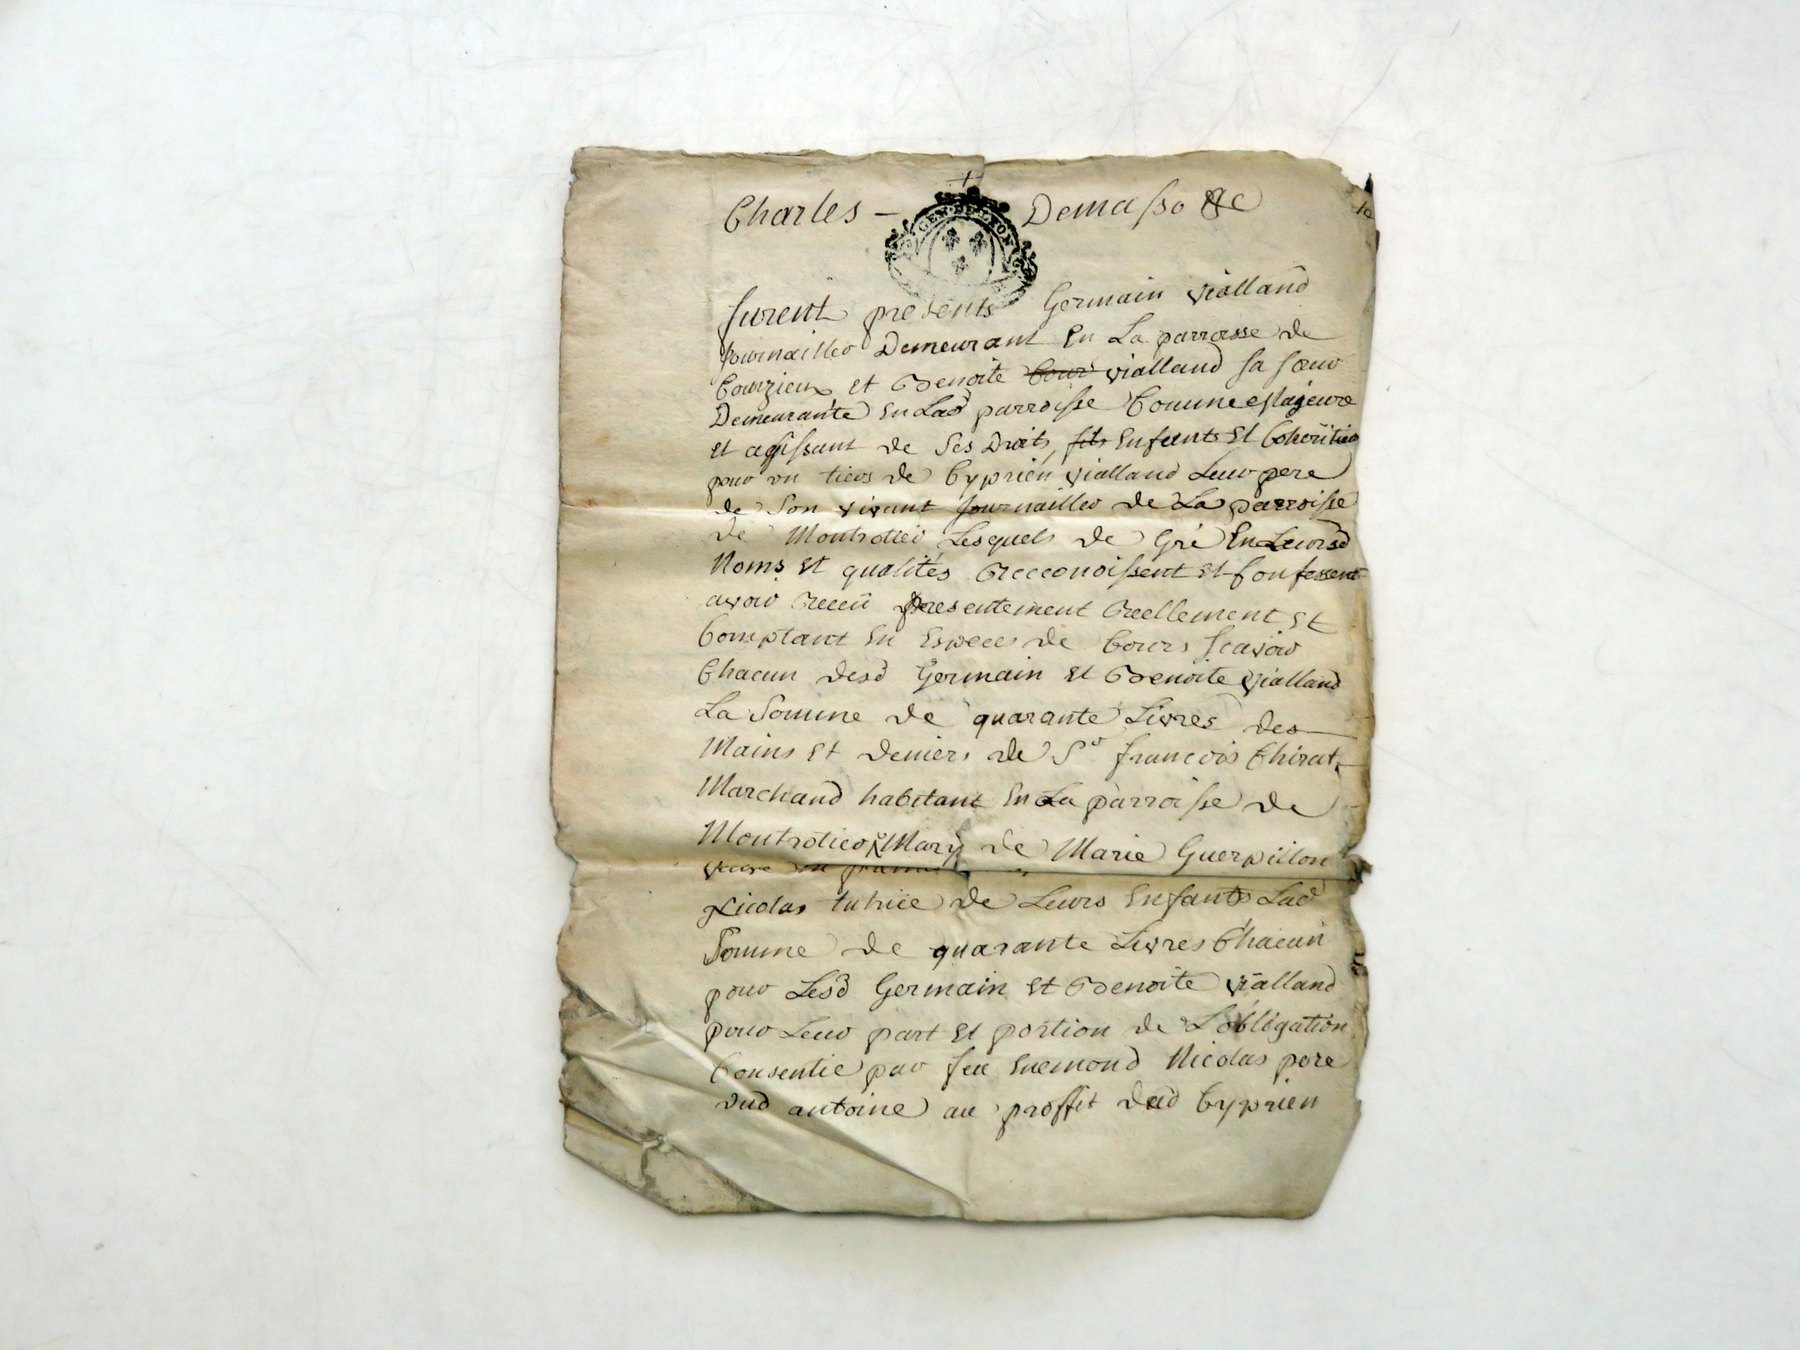 Charles - Demasso
GEN. DE LYON
furent presents Germain vialland
Journaillier Demeurant En La parroisse de
Courzieux et Benoite vialland sa soeur
Demeurante En Lad parroisse Comme Majeure
et agissant de ses Droits, Enfants Et Coheritiers
pour un tiers de Cyprien vialland Leur pere
de son vivant Journaillier de La parroisse
de Montrotier Lesquels de Gré En Leursd
Noms Et qualités Recconoissent Et Confessent
avoir Receu presentement Reellement Et
Comptant En Especes de Cours scavoir
Chacun desd Germain Et Benoite vialland
La Somme de quarante Livres des
Mains Et deniers de Sr francois Thirat
Marchand habitant En La parroisse de
Montrotier Mary de Marie Guerpillon
veuve En
Nicolas tutrice de Leurs Enfants Lad
Somme de quarante Livres Chacun
pour Lesd Germain Et Benoite vialland
pour Leur part Et portion de L'obligation
Consentie par feu Enemond Nicolas pere
dud antoine au proffit dud Cyprien